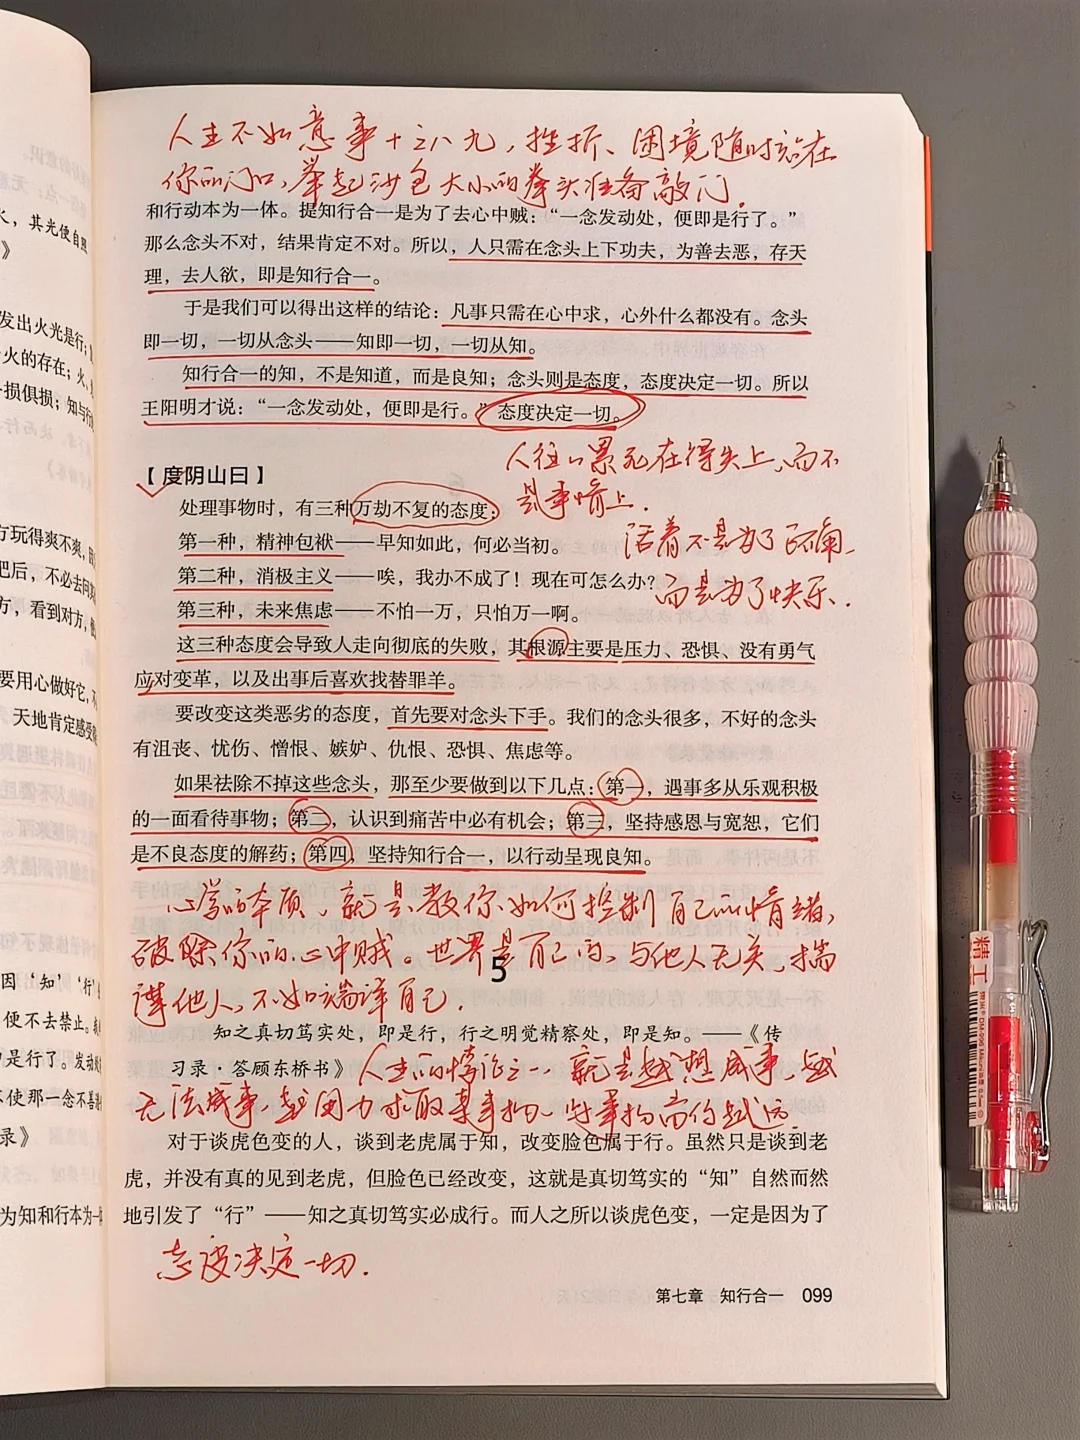 人生不如意事十之八九，挫折、困境随时站在
你的门口，举起沙包大小的拳头准备敲门．
和行动本为一体。提知行合一是为了去心中贼：“一念发动处，便即是行了。”
那么念头不对，结果肯定不对。所以，人只需在念头上下功夫，为善去恶，存天
理，去人欲，即是知行合一。
于是我们可以得出这样的结论：凡事只需在心中求，心外什么都没有。念头
即一切，一切从念头——知即一切，一切从知。
知行合一的知，不是知道，而是良知；念头则是态度，态度决定一切。所以
王阳明才说：“一念发动处，便即是行。”态度决定一切。
人往往累死在得失上，而不
是事情上．
【度阴山曰】
处理事物时，有三种万劫不复的态度：
第一种，精神包袱——早知如此，何必当初。
活着不是为了正确，
第二种，消极主义——唉，我办不成了！现在可怎么办？
而是为了快乐．
第三种，未来焦虑——不怕一万，只怕万一啊。
这三种态度会导致人走向彻底的失败，其根源主要是压力、恐惧、没有勇气
应对变革，以及出事后喜欢找替罪羊。
要改变这类恶劣的态度，首先要对念头下手。我们的念头很多，不好的念头
有沮丧、忧伤、憎恨、嫉妒、仇恨、恐惧、焦虑等。
如果祛除不掉这些念头，那至少要做到以下几点：第一，遇事多从乐观积极
的一面看待事物；第二，认识到痛苦中必有机会；第三，坚持感恩与宽恕，它们
是不良态度的解药；第四，坚持知行合一，以行动呈现良知。
心学的本质，就是教你如何控制自己的情绪，
破除你的心中贼。世界是自己的，与他人无关，揣
5
摩他人，不如端详自己．
知之真切笃实处，即是行，行之明觉精察处，即是知。——《传
习录·答顾东桥书》
人生的悖论之一，就是越想成事，越
无法成事，越用力求取某事物，此事物离你越远．
对于谈虎色变的人，谈到老虎属于知，改变脸色属于行。虽然只是谈到老
虎，并没有真的见到老虎，但脸色已经改变，这就是真切笃实的“知”自然而然
地引发了“行”——知之真切笃实必成行。而人之所以谈虎色变，一定是因为了
态度决定一切．
第七章 知行合一 099
火，其光便自照
发出火光是行；
火的存在；火、
损俱损；知与行
方玩得爽不爽，
把后，不必去问
方，看到对方，
要用心做好它，不
天地肯定感受
因‘知’‘行’
便不去禁止。
是行了。发动
不使那一念不善
录》
为知和行本为一体
精工